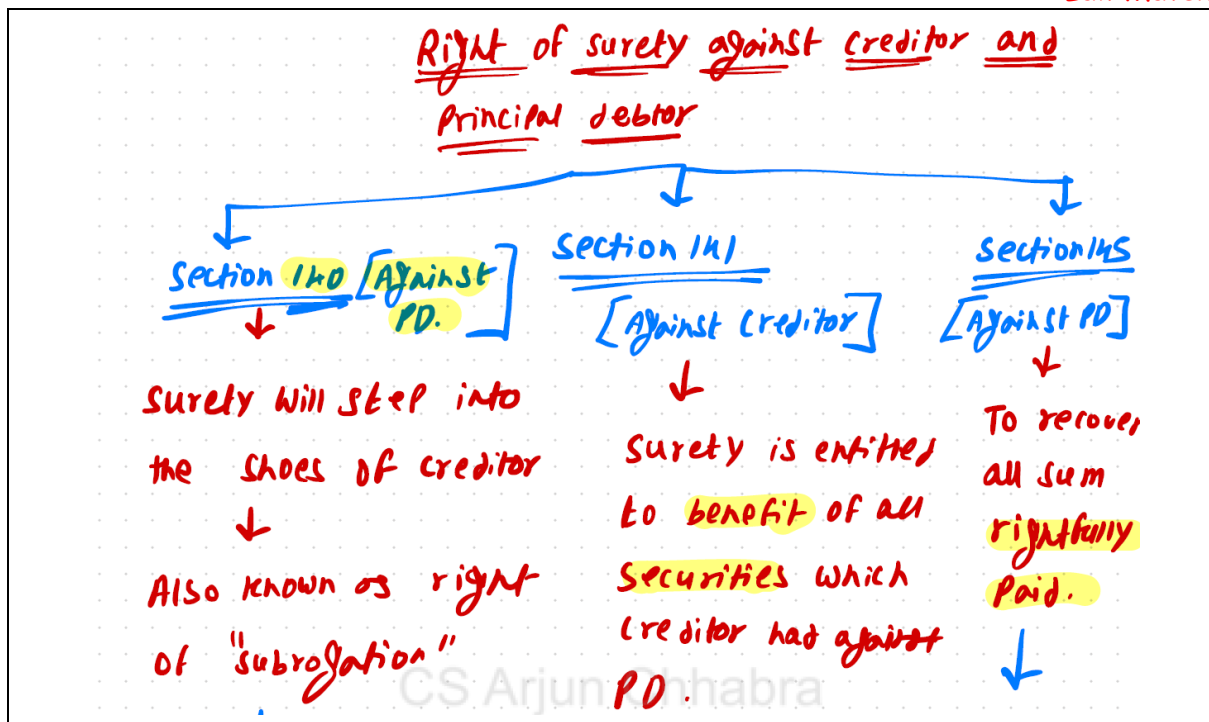 Right of surety against creditor and
Principal debtor
Section 140 [Against PD.]
Surety will step into
the shoes of creditor
Also known as right
of "subrogation"
Section 141
[Against Creditor]
Surety is entitled
to benefit of all
securities which
creditor had against
PD.
Section 145
[Against PD]
To recover
all sum
rightfully
Paid.
CS Arjun Chhabra